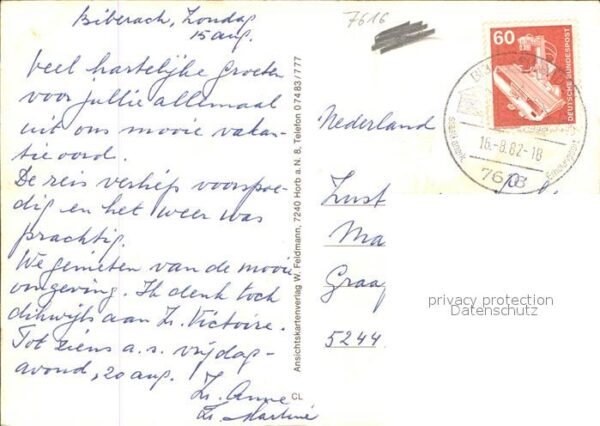 Biberach, Zondag
15 aug.
Veel hartelijke groeten
voor jullie allemaal
uit ons mooie vakan-
tie oord.
De reis verliep voorspoe-
dig en het weer was
prachtig.
We genieten van de mooie
omgeving. Ik denk toch
dikwijls aan Zr. Victoire.
Tot ziens a.s. vrijdag-
avond, 20 aug.
Zr. Anne
Zr. Martine
CL
Ansichtskartenverlag W. Feldmann, 7240 Horb a. N. 8, Telefon 07483/7777
7616
60
DEUTSCHE BUNDESPOST
16.-8.82-18
7616
Nederland
Zust
Ma
Graaf
5244
privacy protection
Datenschutz